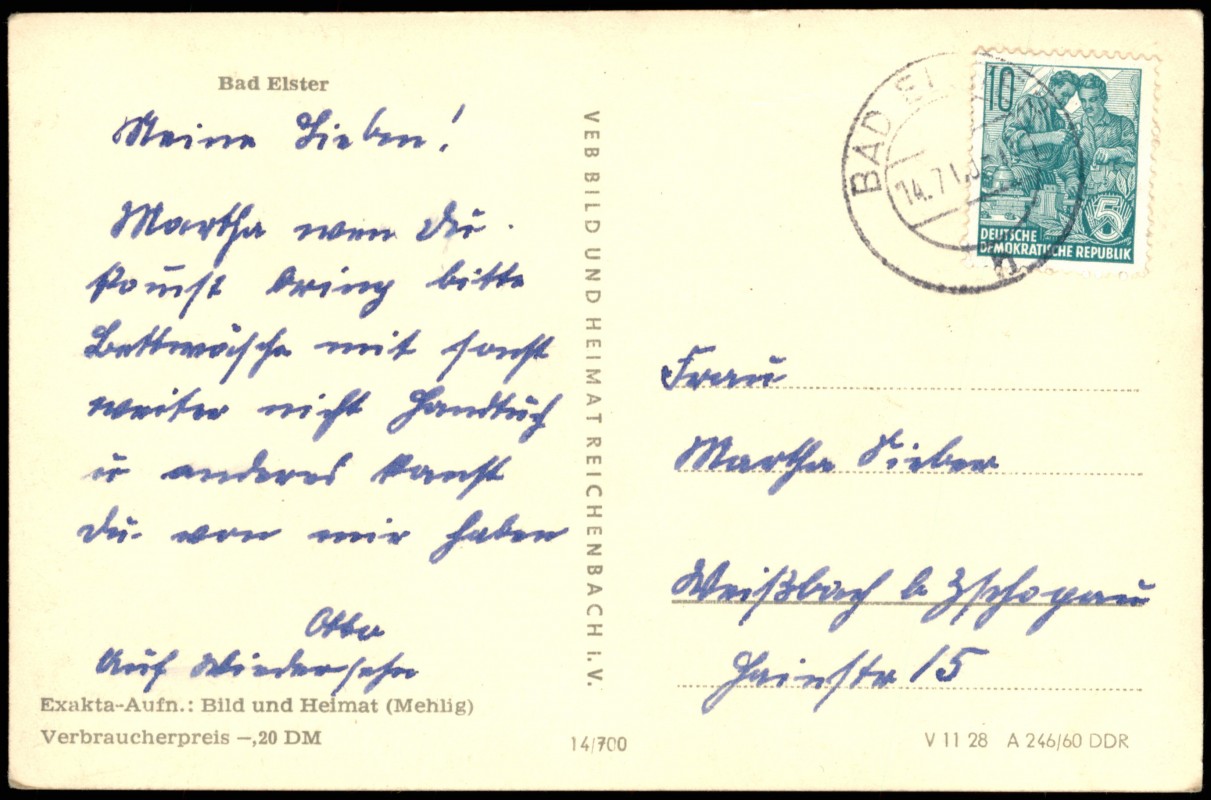 Bad Elster
Meine Lieben!
Martha wen Du
komst bring bitte
Bettwäsche mit sonst
weiter nicht Handtuch
u anderes kanst
Du von mir haben
Otto
Auf Wiedersehn
Exakta-Aufn.: Bild und Heimat (Mehlig)
Verbraucherpreis –,20 DM
VEB BILD UND HEIMAT REICHENBACH i. V.
14/700
BAD EL
14.7
10
5
DEUTSCHE
DEMOKRATISCHE REPUBLIK
Frau
Martha Sieber
Weißbach b Zschopau
Hainstr 15
V 11 28 A 246/60 DDR